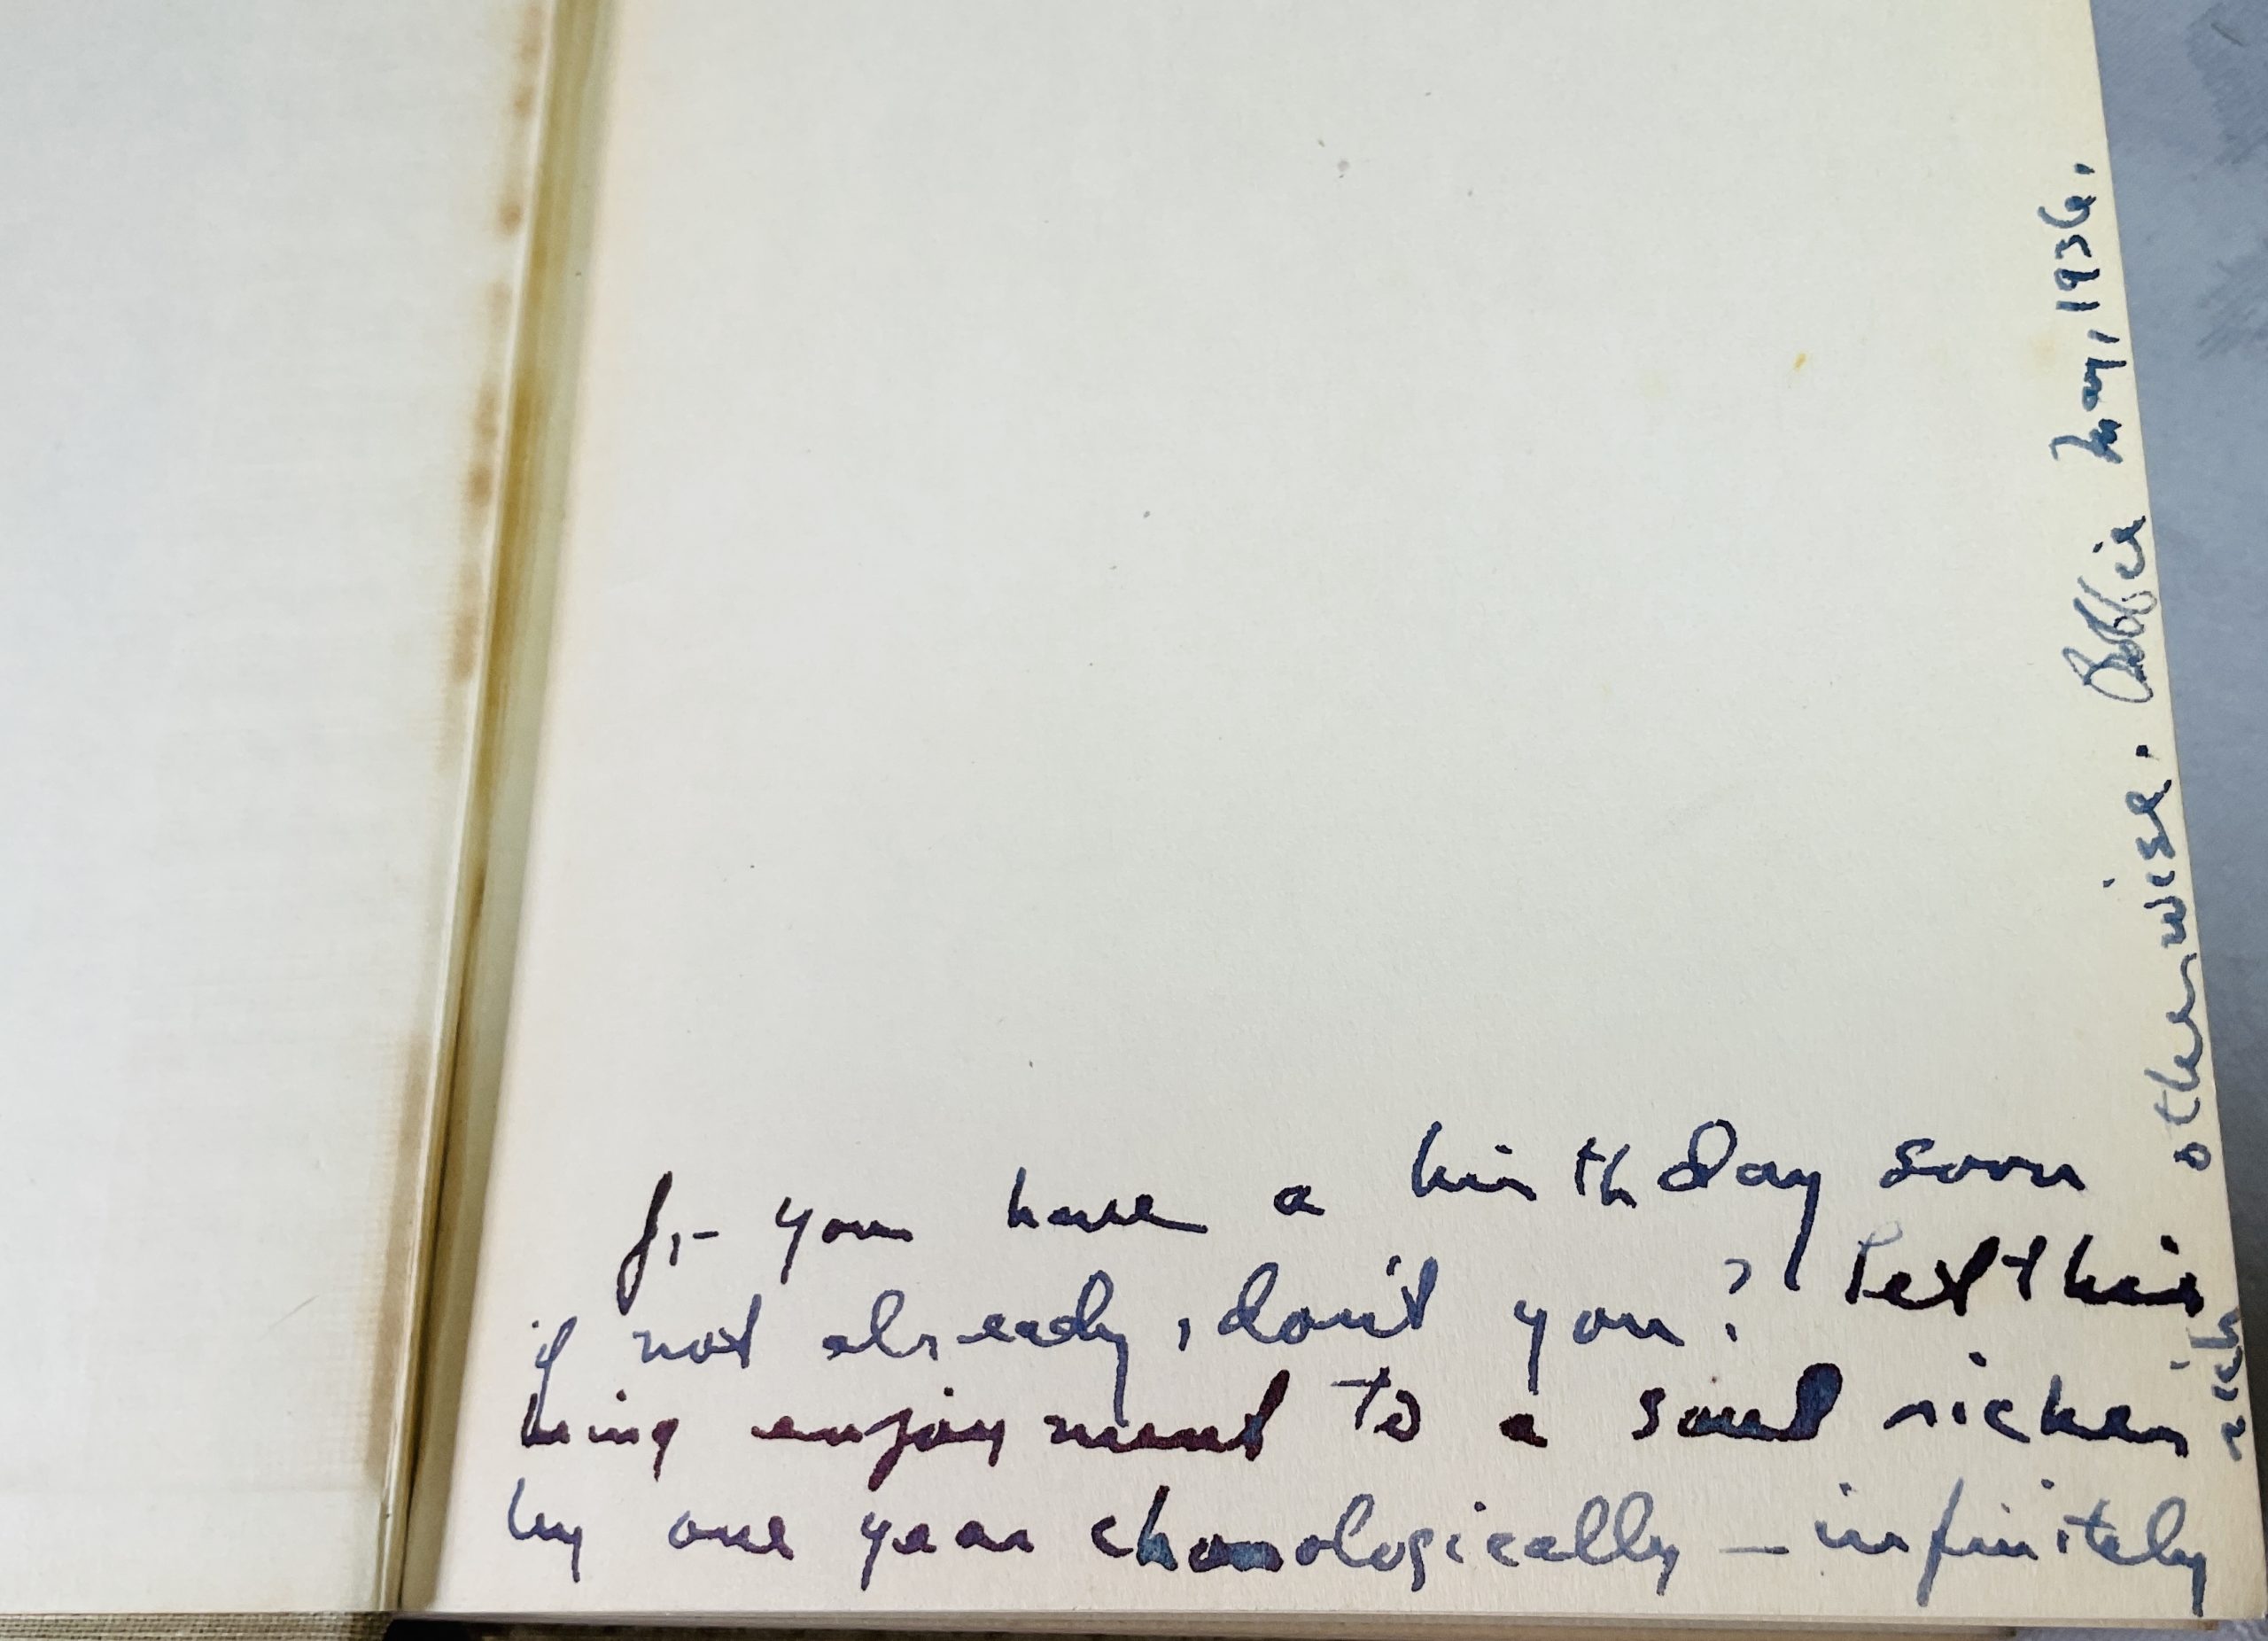 J,- you have a birthday soon
if not already, don't you? Let this
bring enjoyment to a soul richer
by one year chonologically – infinitely
rich otherwise. Bobbie May, 1936.